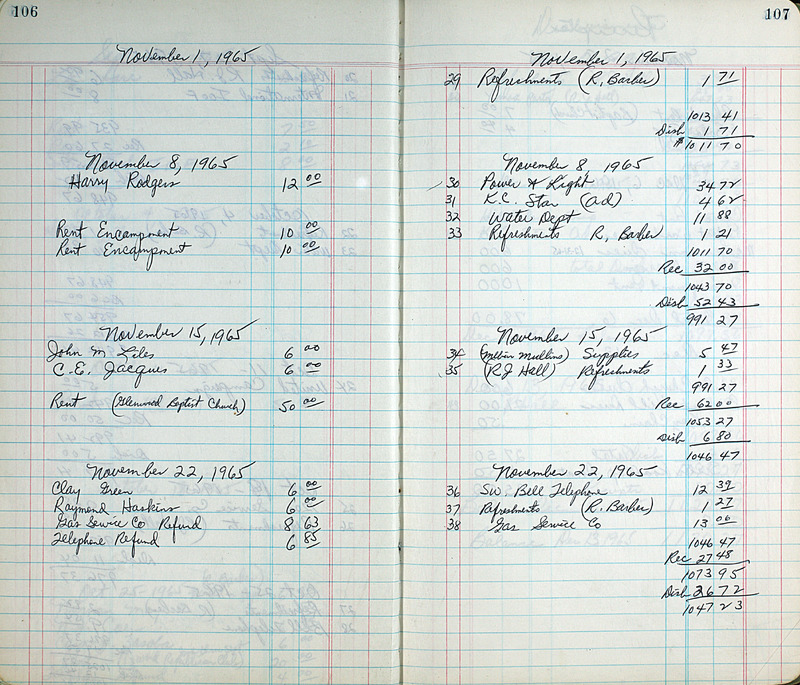 106
November 1, 1965
November 8, 1965
Harry Rodgers 12 00
Rent Encampment 10 00
Rent Encampment 10 00
November 15, 1965
John M Liles 6 00
C.E. Jacques 6 00
Rent (Glenwood Baptist Church) 50 00
November 22, 1965
Clay Green 6 00
Raymond Haskins 6 00
Gas Service Co Refund 8 63
Telephone Refund 6 85
107
November 1, 1965
29 Refreshments (R. Barber) 1 71
1013 41
Disb 1 71
$ 1011 70
November 8, 1965
30 Power & Light 34 72
31 K.C. Star (ad) 4 62
32 Water Dept 11 88
33 Refreshments R. Barber 1 21
1011 70
Rec 32 00
1043 70
Disb 52 43
991 27
November 15, 1965
34 (Melvin Mullins) Supplies 5 47
35 (RJ Hall) Refreshments 1 33
991 27
Rec 62 00
1053 27
Disb 6 80
1046 47
November 22, 1965
36 SW. Bell Telephone 12 39
37 Refreshments (R. Barber) 1 27
38 Gas Service Co 13 06
1046 47
Rec 27 48
1073 95
Disb 26 72
1047 23